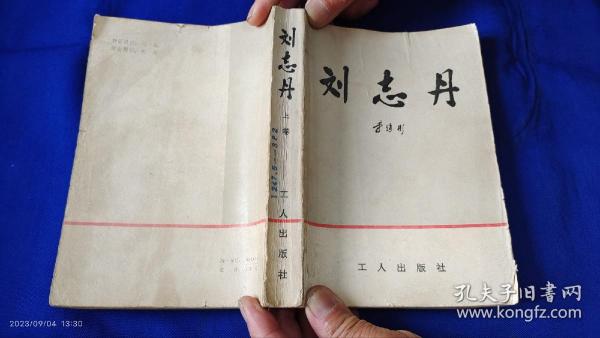 刘志丹
上卷
I247.5-372
工人出版社
刘志丹
李建彤
工人出版社
2023/09/04 13:30
孔夫子旧书网
www.kongfz.com